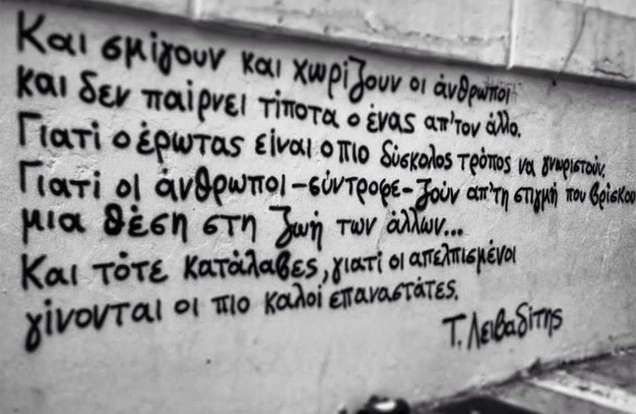 Και σμίγουν και χωρίζουν οι άνθρωποι
και δεν παίρνει τίποτα ο ένας απ'τον άλλο.
Γιατί ο έρωτας είναι ο πιο δύσκολος τρόπος να γνωριστούν.
Γιατί οι άνθρωποι -σύντροφε- ζούν απ'τη στιγμή που βρίσκου
μια θέση στη ζωή των άλλων...
Και τότε κατάλαβες, γιατί οι απελπισμένοι
γίνονται οι πιο καλοί επαναστάτες.
Τ. Λειβαδίτης